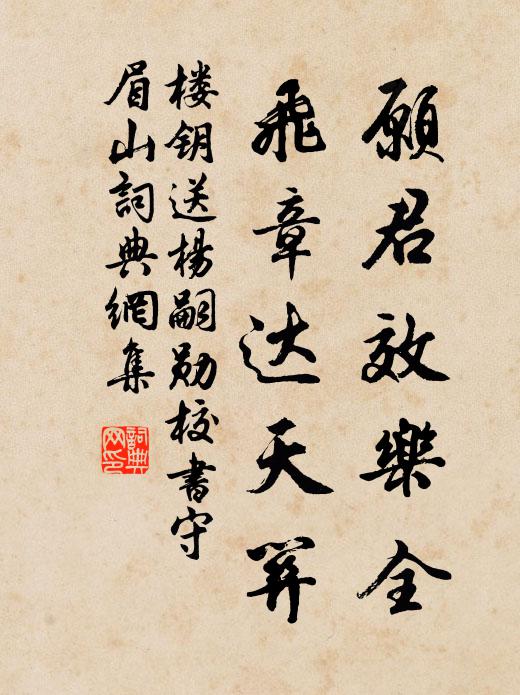 願君效樂全
飛章达天筭
楼钥送楊嗣勋校書守
眉山詞典網集
詞典网印